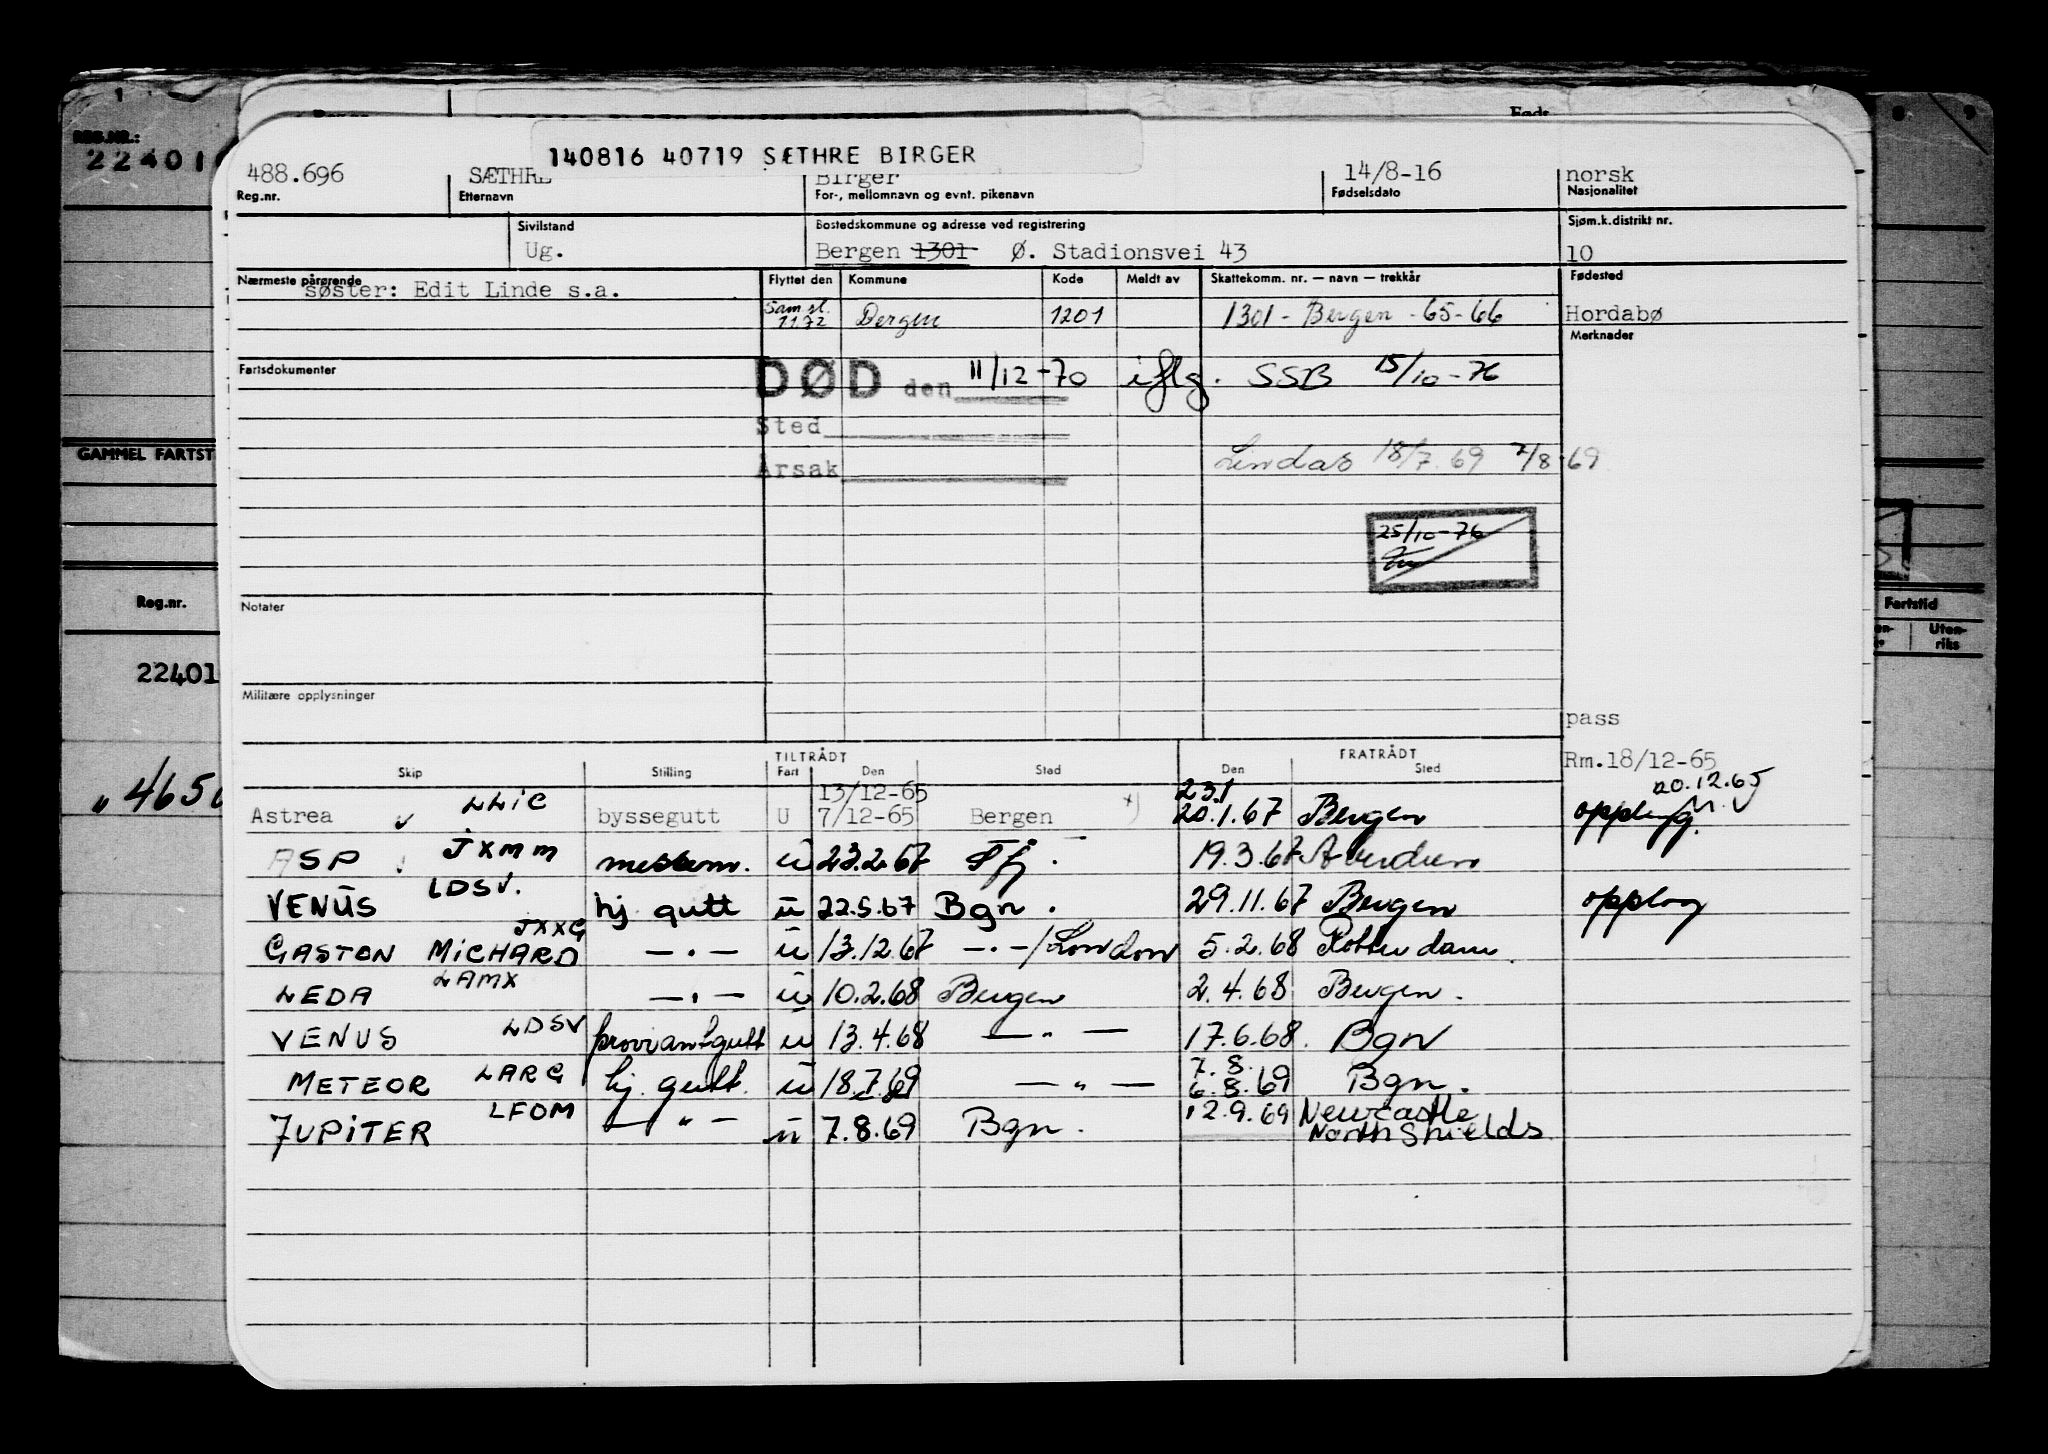 REG.NR.:
22401
GAMMEL FARTST
Reg.nr.
22401
" 465
Født
140816 40719 SÆTHRE BIRGER
488.696 SÆTHRE Birger 14/8-16 norsk
Reg.nr. Etternavn For-, mellomnavn og evnt. pikenavn Fødselsdato Nasjonalitet
Sivilstand Bostedskommune og adresse ved registrering Sjøm.k.distrikt nr.
Ug. Bergen 1301 Ø. Stadionsvei 43 10
Nærmeste pårørende Flyttet den Kommune Kode Meldt av Skattekomm. nr. — navn — trekkår Fødested
søster: Edit Linde s.a.
Sam.sl. 1172 Bergen 1201 1301 - Bergen - 65-66 Hordabø
Merknader
Fartsdokumenter
DØD den 11/12-70 iflg. SSB 15/10-76
Sted
Årsak
Lindås 18/7.69 7/8-69
25/10-76
Notater
Militære opplysninger
pass
Rm.18/12-65
TILTRÅDT FRATRÅDT
Skip Stilling Fart Den Sted Den Sted
13/12-65 23.1 20.12.65
Astrea LLIC byssegutt U 7/12-65 Bergen x) 20.1.67 Bergen
ASP JXMM messem. ū 23.2.67 Tfj. 19.3.67
VENUS LDSV. hj gutt ū 22.5.67 Bgn. 29.11.67 Bergen opplag
GASTON MICHARD JXXG —.— ū 13.12.67 —.—/London 5.2.68 Rotterdam.
LEDA LAMX —.— ū 10.2.68 Bergen 2.4.68 Bergen.
VENUS LDSV proviantgutt ū 13.4.68 —"— 17.6.68. Bgn
METEOR LARG hj. gutt. ū 18.7.69 —"— 7.8. 6.8.69 Bgn.
JUPITER LFOM —"— ū 7.8.69 Bgn. 12.9.69 Newcastle
North Shields
Fartstid
Uten-
riks